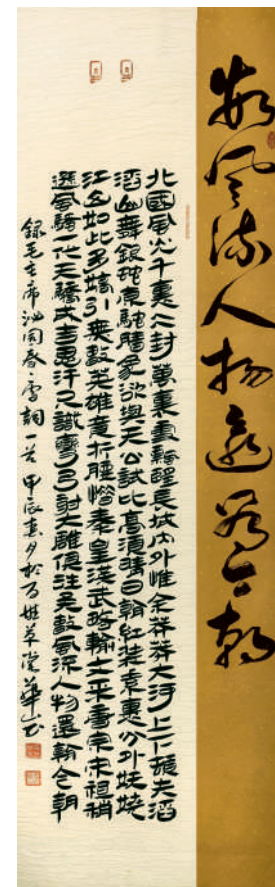 數風流人物還看今朝
北國風光千裏冰封萬裏雪飄望長城內外惟余莽莽大河上下頓失滔
滔山舞銀蛇原馳臘象欲與天公試比高須晴日看紅裝素裹分外妖嬈
江山如此多嬌引無數英雄競折腰惜秦皇漢武略輸文采唐宗宋祖稍
遜風騷一代天驕成吉思汗只識彎弓射大雕俱往矣數風流人物還看今朝
錄毛主席沁園春雪詞一首甲辰春月於百姓草堂華山書